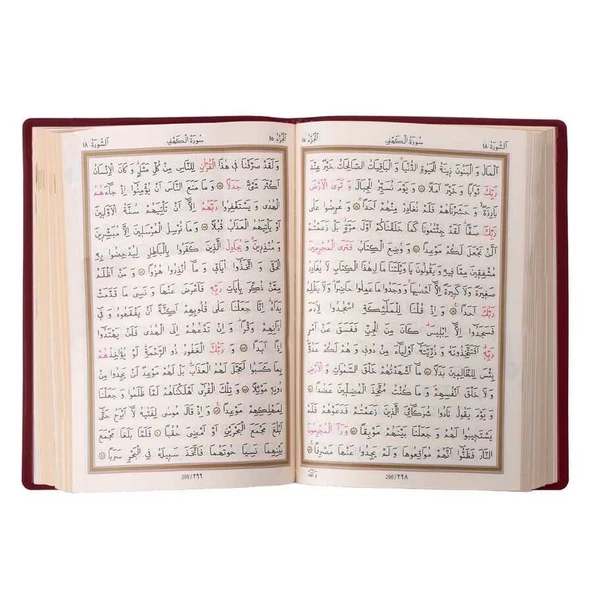 السورة: ١٨ سورة الكهف الجزء: ١٥
اَلْمَالُ وَ الْبَنُونَ زِينَةُ الْحَيٰوةِ الدُّنْيَا وَ الْبَاقِيَاتُ الصَّالِحَاتُ خَيْرٌ عِنْدَ
رَبِّكَ ثَوَابًا وَ خَيْرٌ اَمَلًا وَ يَوْمَ نُسَيِّرُ الْجِبَالَ وَ تَرَى الْاَرْضَ
بَارِزَةً وَ حَشَرْنَاهُمْ فَلَمْ نُغَادِرْ مِنْهُمْ اَحَدًا وَ عُرِضُوا عَلٰى
رَبِّكَ صَفًّا لَقَدْ جِئْتُمُونَا كَمَا خَلَقْنَاكُمْ اَوَّلَ مَرَّةٍ بَلْ زَعَمْتُمْ
اَلَّنْ نَجْعَلَ لَكُمْ مَوْعِدًا وَ وُضِعَ الْكِتَابُ فَتَرَى الْمُجْرِمِينَ
مُشْفِقِينَ مِمَّا فِيهِ وَ يَقُولُونَ يَا وَيْلَتَنَا مَالِ هٰذَا الْكِتَابِ لَا يُغَادِرُ
صَغِيرَةً وَ لَا كَبِيرَةً اِلَّا اَحْصٰيهَا وَ وَجَدُوا مَا عَمِلُوا حَاضِرًا وَ لَا يَظْلِمُ
رَبُّكَ اَحَدًا وَ اِذْ قُلْنَا لِلْمَلٰٓئِكَةِ اسْجُدُوا لِاٰدَمَ
فَسَجَدُوا اِلَّا اِبْلِيسَ كَانَ مِنَ الْجِنِّ فَفَسَقَ عَنْ اَمْرِ
رَبِّهِ اَفَتَتَّخِذُونَهُ وَ ذُرِّيَّتَهُ اَوْلِيَاءَ مِنْ دُونِى وَ هُمْ لَكُمْ عَدُوٌّ
بِئْسَ لِلظَّالِمِينَ بَدَلًا مَا اَشْهَدْتُهُمْ خَلْقَ السَّمٰوَاتِ وَ الْاَرْضِ
وَ لَا خَلْقَ اَنْفُسِهِمْ وَ مَا كُنْتُ مُتَّخِذَ الْمُضِلِّينَ عَضُدًا
وَ يَوْمَ يَقُولُ نَادُوا شُرَكَاءِىَ الَّذِينَ زَعَمْتُمْ فَدَعَوْهُمْ فَلَمْ
يَسْتَجِيبُوا لَهُمْ وَ جَعَلْنَا بَيْنَهُمْ مَوْبِقًا وَ رَاَ الْمُجْرِمُونَ
النَّارَ فَظَنُّوا اَنَّهُمْ مُوَاقِعُوهَا وَ لَمْ يَجِدُوا عَنْهَا مَصْرِفًا
298/٢٩٨
الجزء: ١٥ سورة الكهف السورة: ١٨
وَ لَقَدْ صَرَّفْنَا فِى هٰذَا الْقُرْاٰنِ لِلنَّاسِ مِنْ كُلِّ مَثَلٍ وَ كَانَ الْاِنْسَانُ
اَكْثَرَ شَىْءٍ جَدَلًا وَ مَا مَنَعَ النَّاسَ اَنْ يُؤْمِنُوا اِذْ جَاءَهُمُ
الْهُدٰى وَ يَسْتَغْفِرُوا رَبَّهُمْ اِلَّا اَنْ تَاْتِيَهُمْ سُنَّةُ الْاَوَّلِينَ
اَوْ يَاْتِيَهُمُ الْعَذَابُ قُبُلًا وَ مَا نُرْسِلُ الْمُرْسَلِينَ اِلَّا مُبَشِّرِينَ
وَ مُنْذِرِينَ وَ يُجَادِلُ الَّذِينَ كَفَرُوا بِالْبَاطِلِ لِيُدْحِضُوا بِهِ
الْحَقَّ وَ اتَّخَذُوا اٰيَاتِى وَ مَا اُنْذِرُوا هُزُوًا وَ مَنْ اَظْلَمُ
مِمَّنْ ذُكِّرَ بِاٰيَاتِ رَبِّهِ فَاَعْرَضَ عَنْهَا وَ نَسِىَ مَا قَدَّمَتْ
يَدَاهُ اِنَّا جَعَلْنَا عَلٰى قُلُوبِهِمْ اَكِنَّةً اَنْ يَفْقَهُوهُ وَ فِى
اٰذَانِهِمْ وَقْرًا وَ اِنْ تَدْعُهُمْ اِلَى الْهُدٰى فَلَنْ يَهْتَدُوا
اِذًا اَبَدًا وَ رَبُّكَ الْغَفُورُ ذُو الرَّحْمَةِ لَوْ يُؤَاخِذُهُمْ
بِمَا كَسَبُوا لَعَجَّلَ لَهُمُ الْعَذَابَ بَلْ لَهُمْ مَوْعِدٌ لَنْ يَجِدُوا مِنْ
دُونِهِ مَوْئِلًا وَ تِلْكَ الْقُرٰى اَهْلَكْنَاهُمْ لَمَّا ظَلَمُوا وَ جَعَلْنَا
لِمَهْلِكِهِمْ مَوْعِدًا وَ اِذْ قَالَ مُوسٰى لِفَتٰيهُ لَا اَبْرَحُ حَتّٰى
اَبْلُغَ مَجْمَعَ الْبَحْرَيْنِ اَوْ اَمْضِىَ حُقُبًا فَلَمَّا بَلَغَا مَجْمَعَ
بَيْنِهِمَا نَسِيَا حُوتَهُمَا فَاتَّخَذَ سَبِيلَهُ فِى الْبَحْرِ سَرَبًا
299/٢٩٩